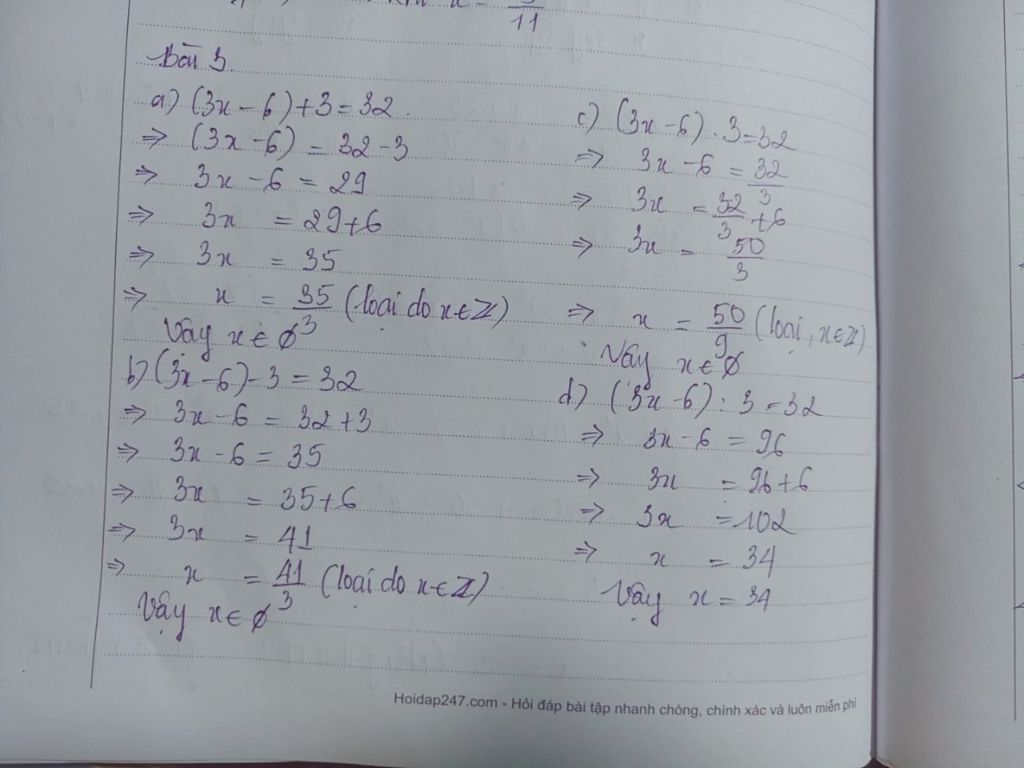 11
Bài 3.
a) (3x - 6) + 3 = 32.
⇒ (3x - 6) = 32 - 3
⇒ 3x - 6 = 29
⇒ 3x = 29 + 6
⇒ 3x = 35
⇒ x = 35/3 (loại do x ∈ Z)
Vậy x ∈ ∅
b) (3x - 6) - 3 = 32
⇒ 3x - 6 = 32 + 3
⇒ 3x - 6 = 35
⇒ 3x = 35 + 6
⇒ 3x = 41
⇒ x = 41/3 (loại do x ∈ Z)
Vậy x ∈ ∅
c) (3x - 6) . 3 = 32
⇒ 3x - 6 = 32/3
⇒ 3x = 32/3 + 6
⇒ 3x = 50/3
⇒ x = 50/9 (loại, x ∈ Z)
Vậy x ∈ ∅
d) (3x - 6) : 3 = 32
⇒ 3x - 6 = 96
⇒ 3x = 96 + 6
⇒ 3x = 102
⇒ x = 34
Vậy x = 34
Hoidap247.com - Hỏi đáp bài tập nhanh chóng, chính xác và luôn miễn phí